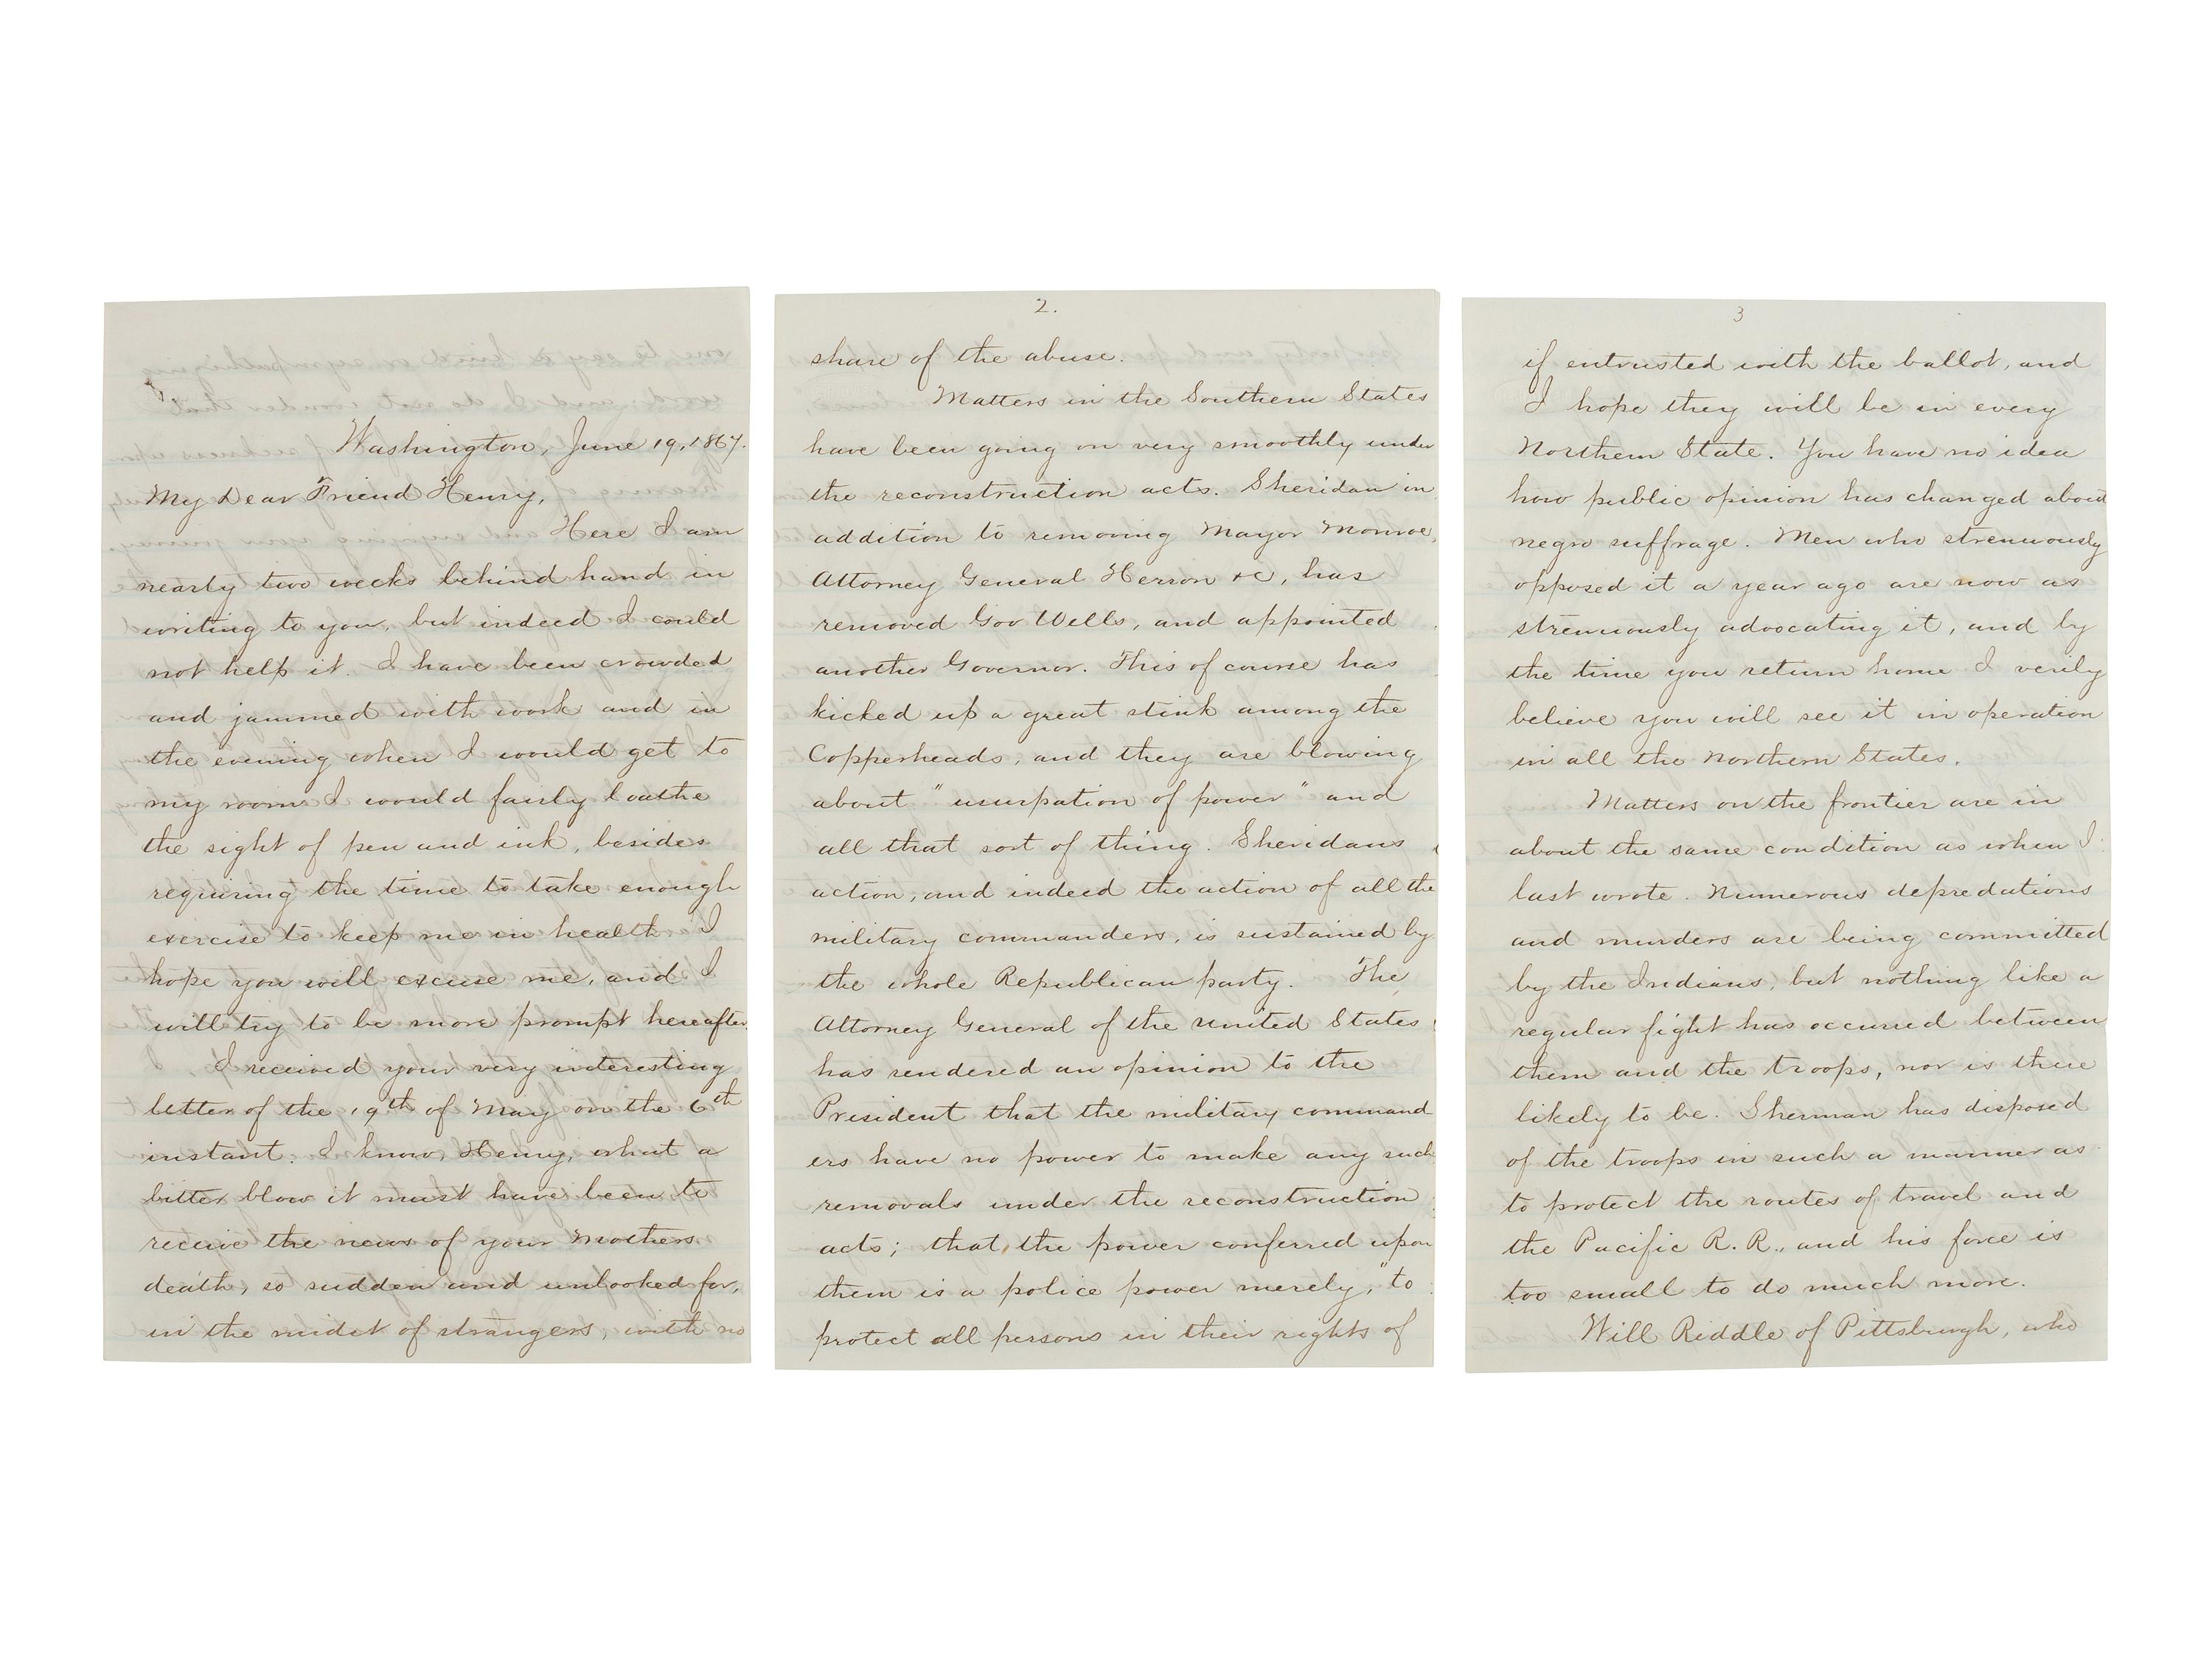 Washington, June 19, 1867.
My Dear Friend Henry,
Here I am
nearly two weeks behind hand in
writing to you, but indeed I could
not help it. I have been crowded
and jammed with work and in
the evening when I would get to
my room I would fairly loathe
the sight of pen and ink, besides
requiring the time to take enough
exercise to keep me in health. I
hope you will excuse me, and I
will try to be more prompt hereafter.
I received your very interesting
letter of the 19th of May on the 6th
instant. I know, Henry, what a
bitter blow it must have been to
receive the news of your Mothers
death, so sudden and unlooked for,
in the midst of strangers, with no
2.
share of the abuse.
Matters in the Southern States
have been going on very smoothly under
the reconstruction acts. Sheridan in
addition to removing Mayor Monroe,
Attorney General Herron &c, has
removed Gov Wells, and appointed
another Governor. This of course has
kicked up a great stink among the
Copperheads, and they are blowing
about "usurpation of power" and
all that sort of thing. Sheridans
action, and indeed the action of all the
military commanders, is sustained by
the whole Republican party. The
Attorney General of the United States
has rendered an opinion to the
President that the military command
ers have no power to make any such
removals under the reconstruction
acts; that the power conferred upon
them is a police power merely, "to
protect all persons in their rights of
3
if entrusted with the ballot, and
I hope they will be in every
Northern State. You have no idea
how public opinion has changed about
negro suffrage. Men who strenuously
opposed it a year ago are now as
strenuously advocating it, and by
the time you return home I verily
believe you will see it in operation
in all the Northern States.
Matters on the frontier are in
about the same condition as when I
last wrote. Numerous depredations
and murders are being committed
by the Indians, but nothing like a
regular fight has occurred between
them and the troops, nor is there
likely to be. Sherman has disposed
of the troops in such a manner as
to protect the routes of travel and
the Pacific R. R., and his force is
too small to do much more.
Will Riddle of Pittsburgh, who